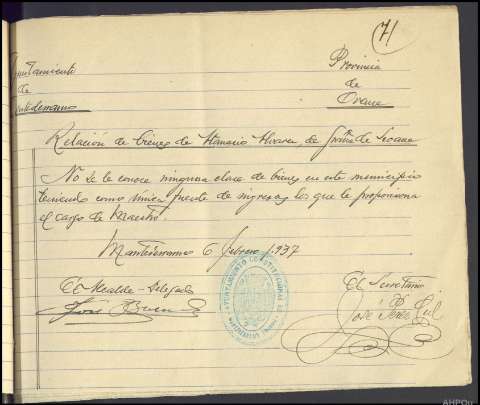 71
Provincia
de
Orense
de
Relación de bienes de Atanasio Alvarez de
No se le conoce ninguna clase de bienes en este municipio
teniendo como única fuente de ingresos los que le proporciona
el cargo de Maestro.
6 febrero 1937
El Alcalde-Delegado
El Secretario
José
José Pérez Gil
AHPOu